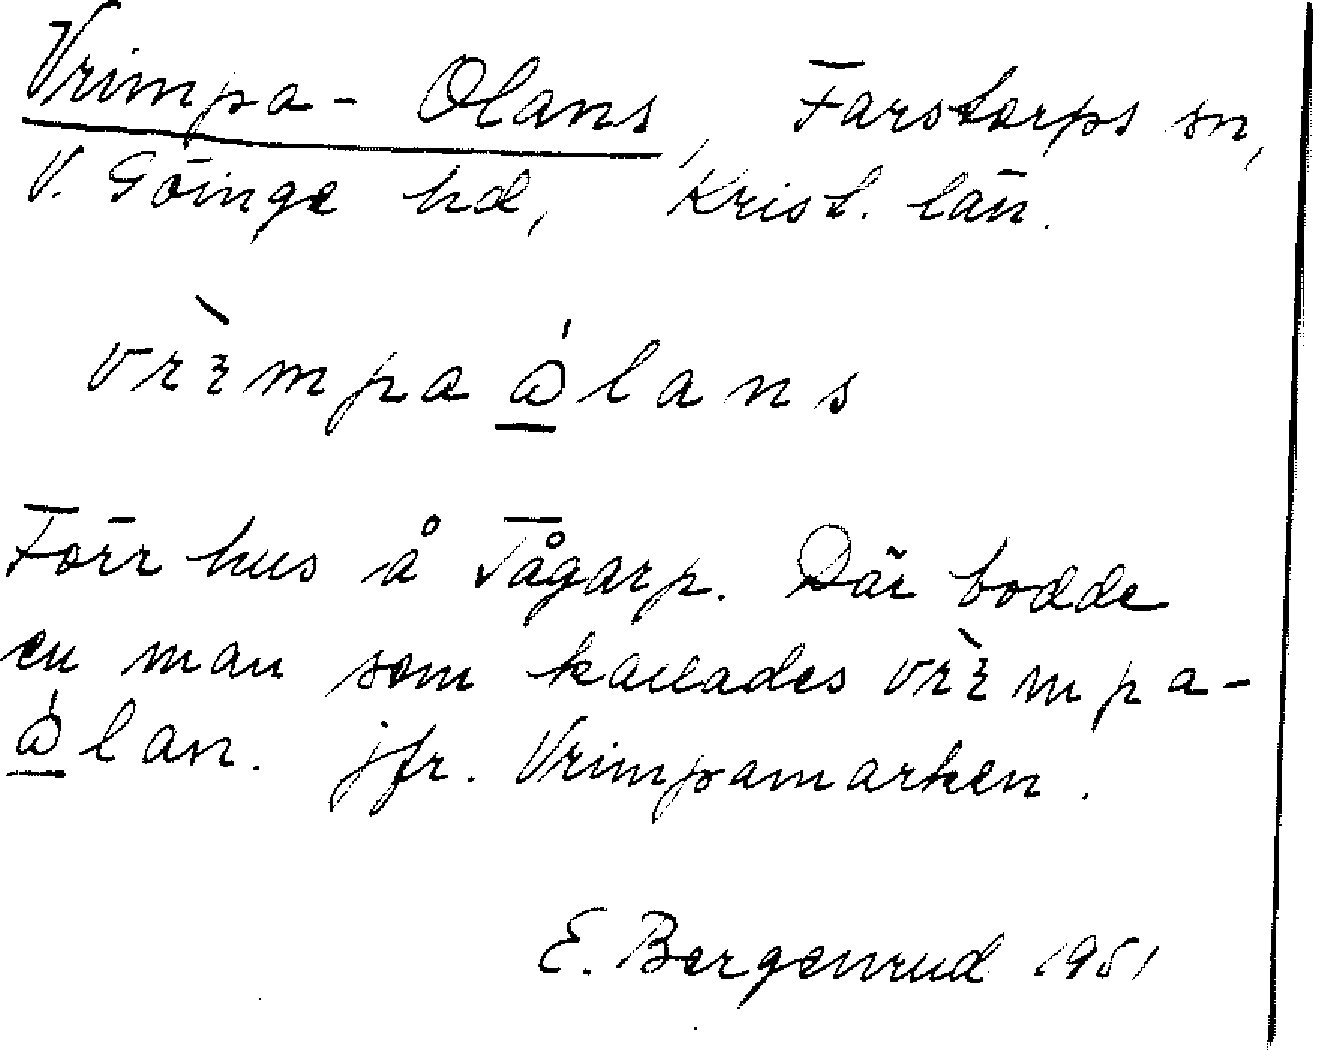 Vrimpa-Olans, Farstorps sn,
V. Göinge hd, Krist. län.
vrèmpaålans
Förr hus å Tågarp. Där bodde
en man som kallades vrèmpa-
ålan. jfr. Vrimpamarken.
E. Bergenrud 1951